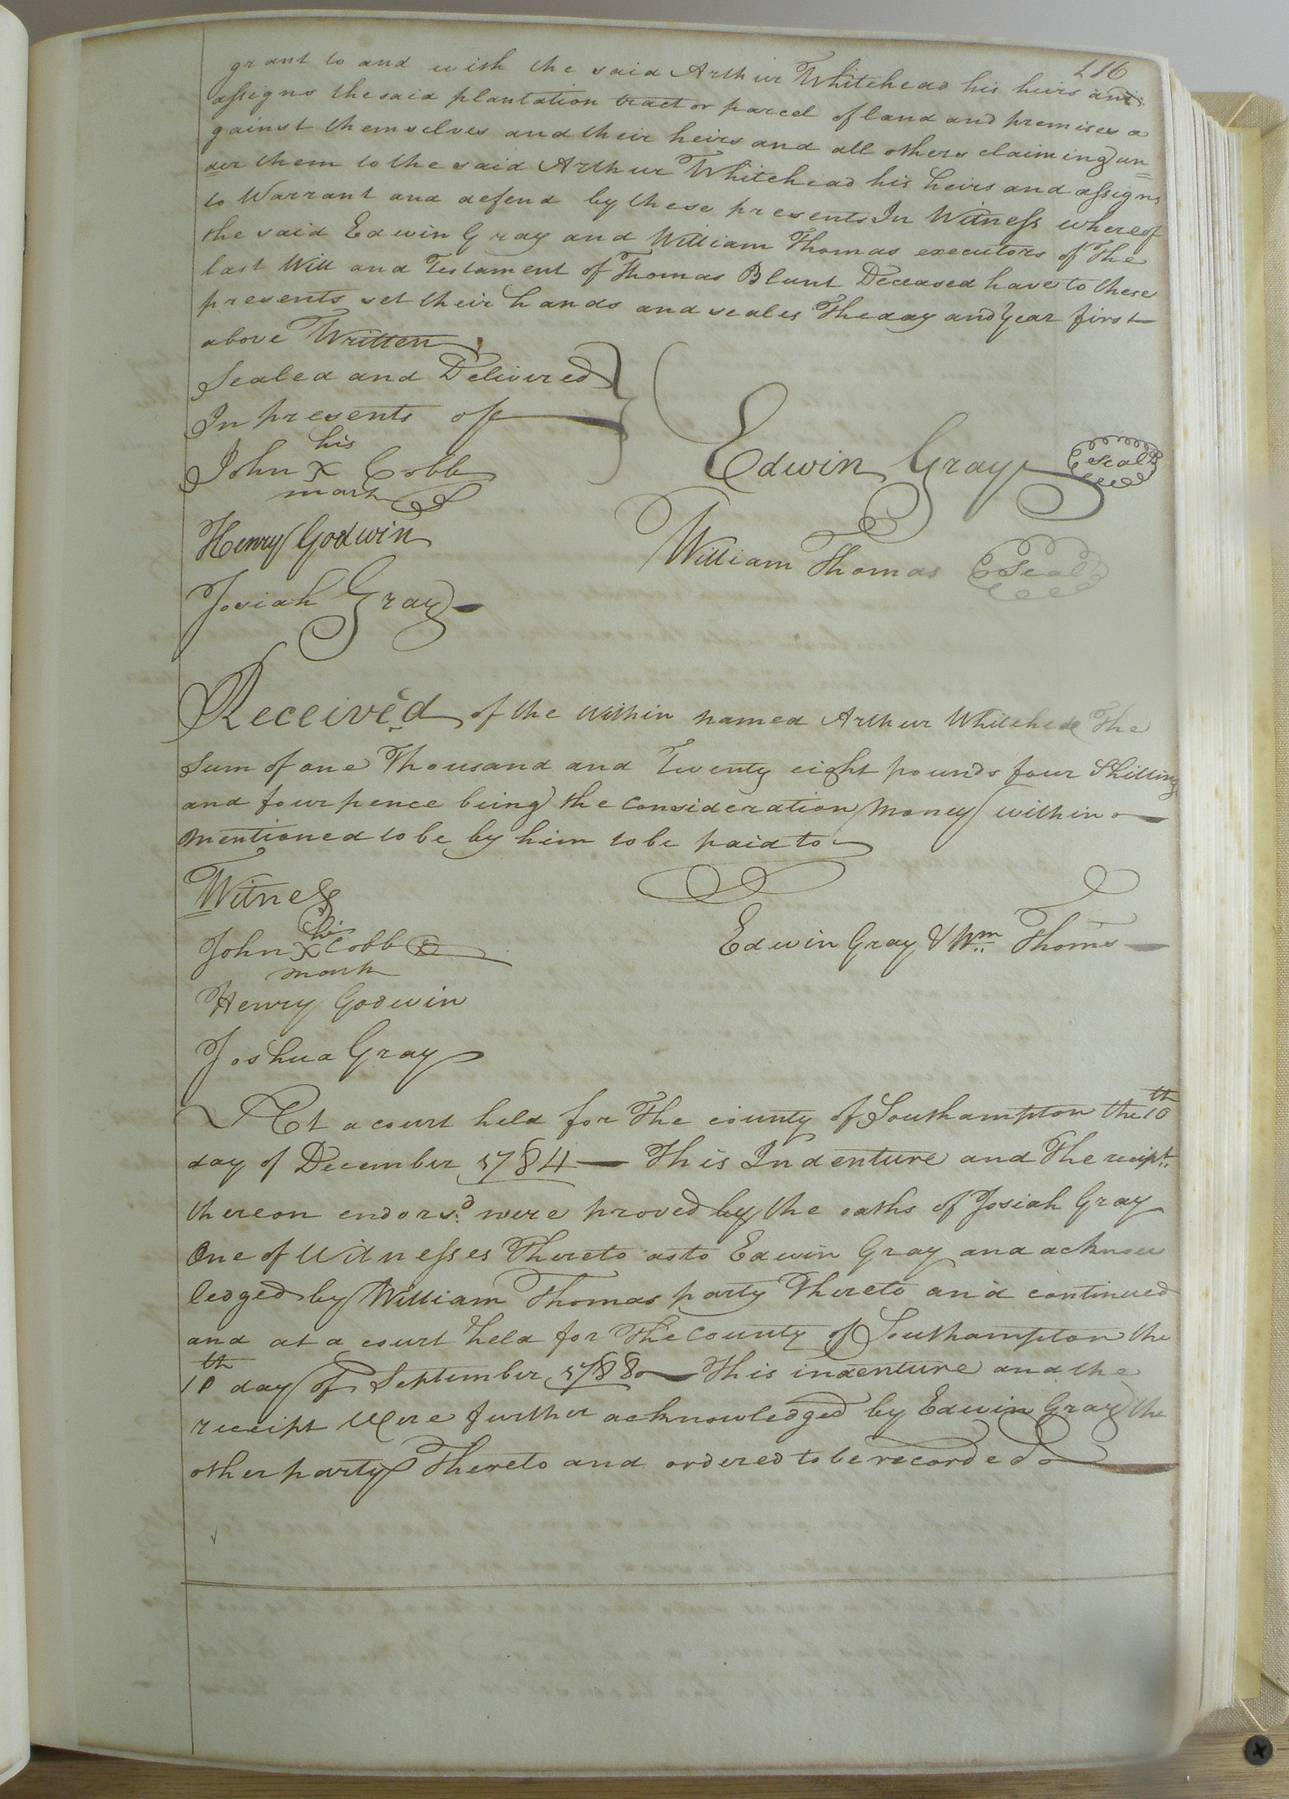 216
grant to and with the said Arthur Whitehead his heirs and
assigns the said plantation tract or parcel of land and premises a
gainst themselves and their heirs and all others claiming un=
der them to the said Arthur Whitehead his heirs and assigns
to Warrant and defend by these presents In Witness whereof
the said Edwin Gray and William Thomas executors of The
last Will and Testament of Thomas Blunt Deceased have to these
presents set their hands and seales The day and Year first
above Written
Sealed and Delivered
In presents off
John his X mark Cobb
Edwin Gray Seal
Henry Godwin
William Thomas Seal
Josiah Gray
Received of the within named Arthur Whitehead The
Sum of one Thousand and Twenty eight pounds four Shilling
and four pence being the Consideration Money within
mentioned to be by him to be paid to
Witness
John his X mark Cobb
Edwin Gray & Wm Thoms
Henry Godwin
Joshua Gray
At a court held for The county of Southampton the 10th
day of December 1784 This Indenture and The reicpt
thereon endorsd were proved by the oaths of Josiah Gray
One of Witnesses Thereto as to Edwin Gray and acknow
ledged by William Thomas party Thereto and continued
and at a court held for The County of Southampton the
10th day of September 1788 This indenture and the
receipt Were further acknowledged by Edwin Gray the
other party Thereto and ordered to be recorded